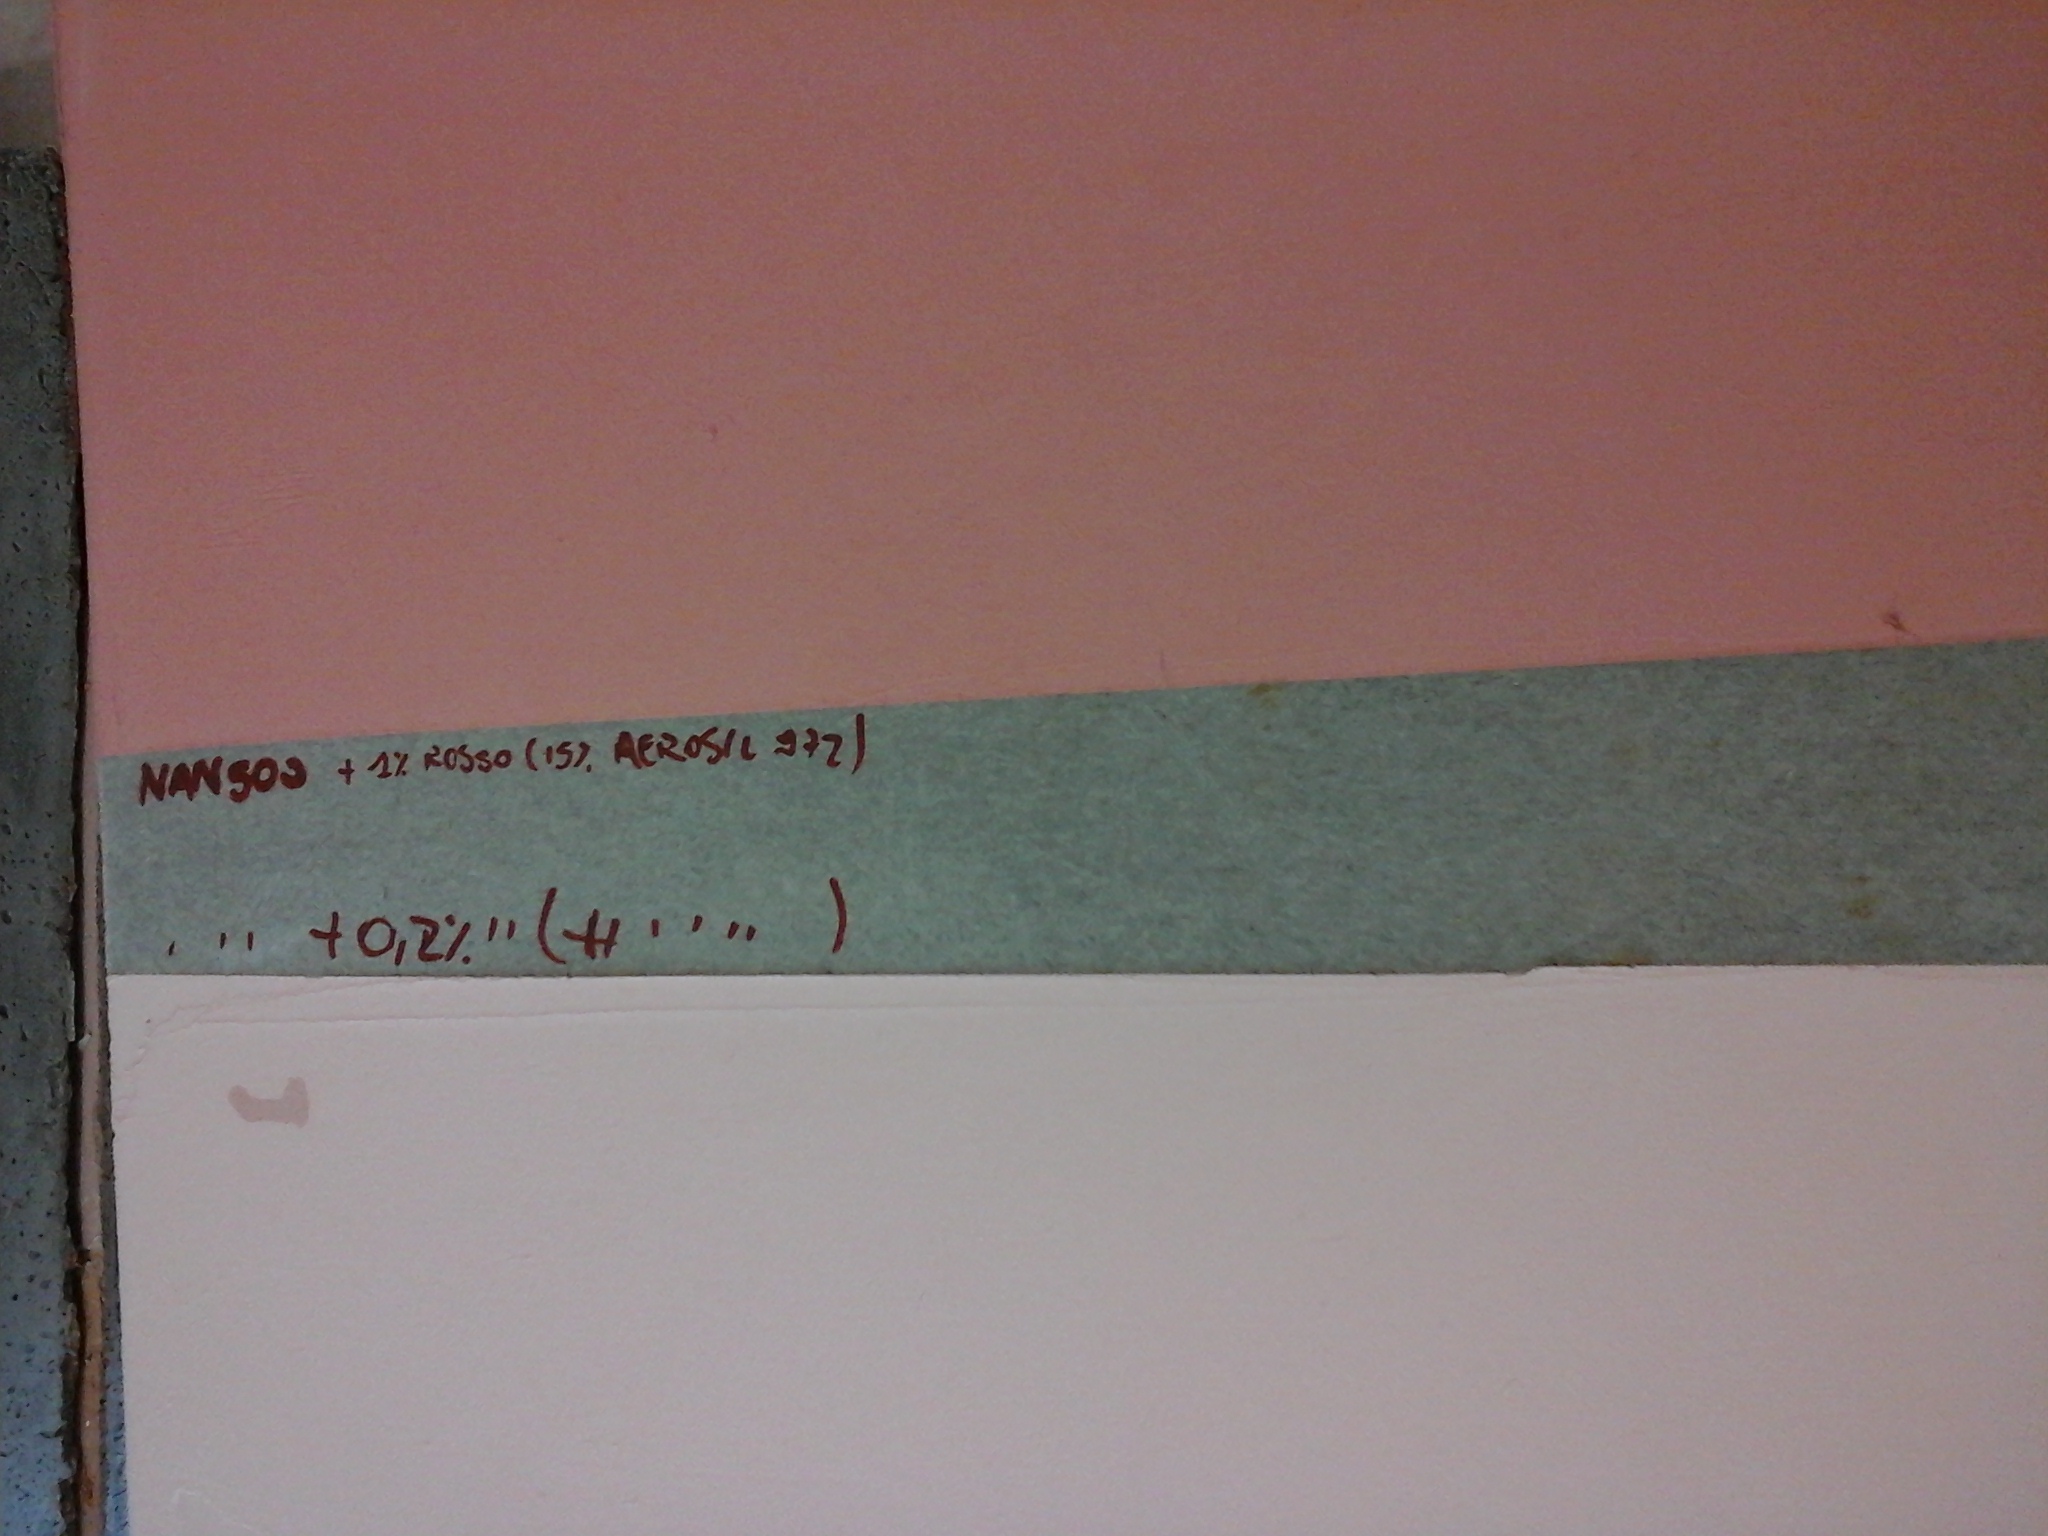 NANSOO + 1% ROSSO (15% AEROSIL 972)
" " + 0,2% " ( " " " " )